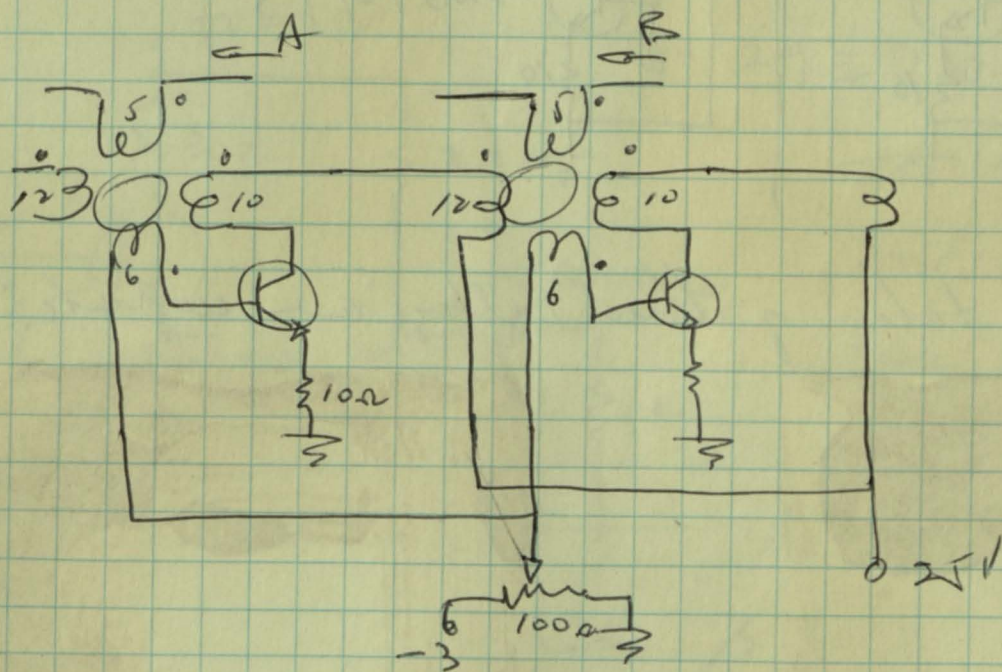 A
B
5
5
12
10
12
10
6
6
10Ω
25V
100Ω
-3